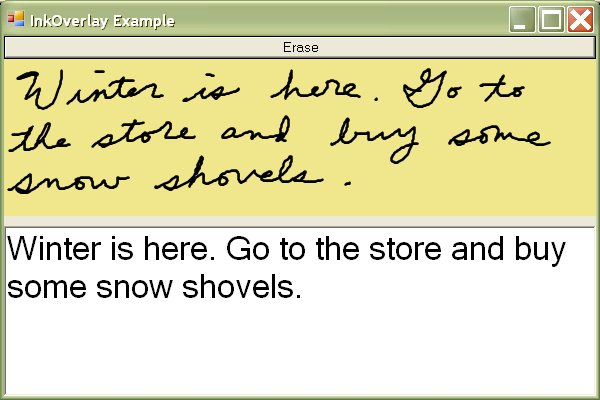 InkOverlay Example
Erase
Winter is here. Go to
the store and buy some
snow shovels.
Winter is here. Go to the store and buy
some snow shovels.